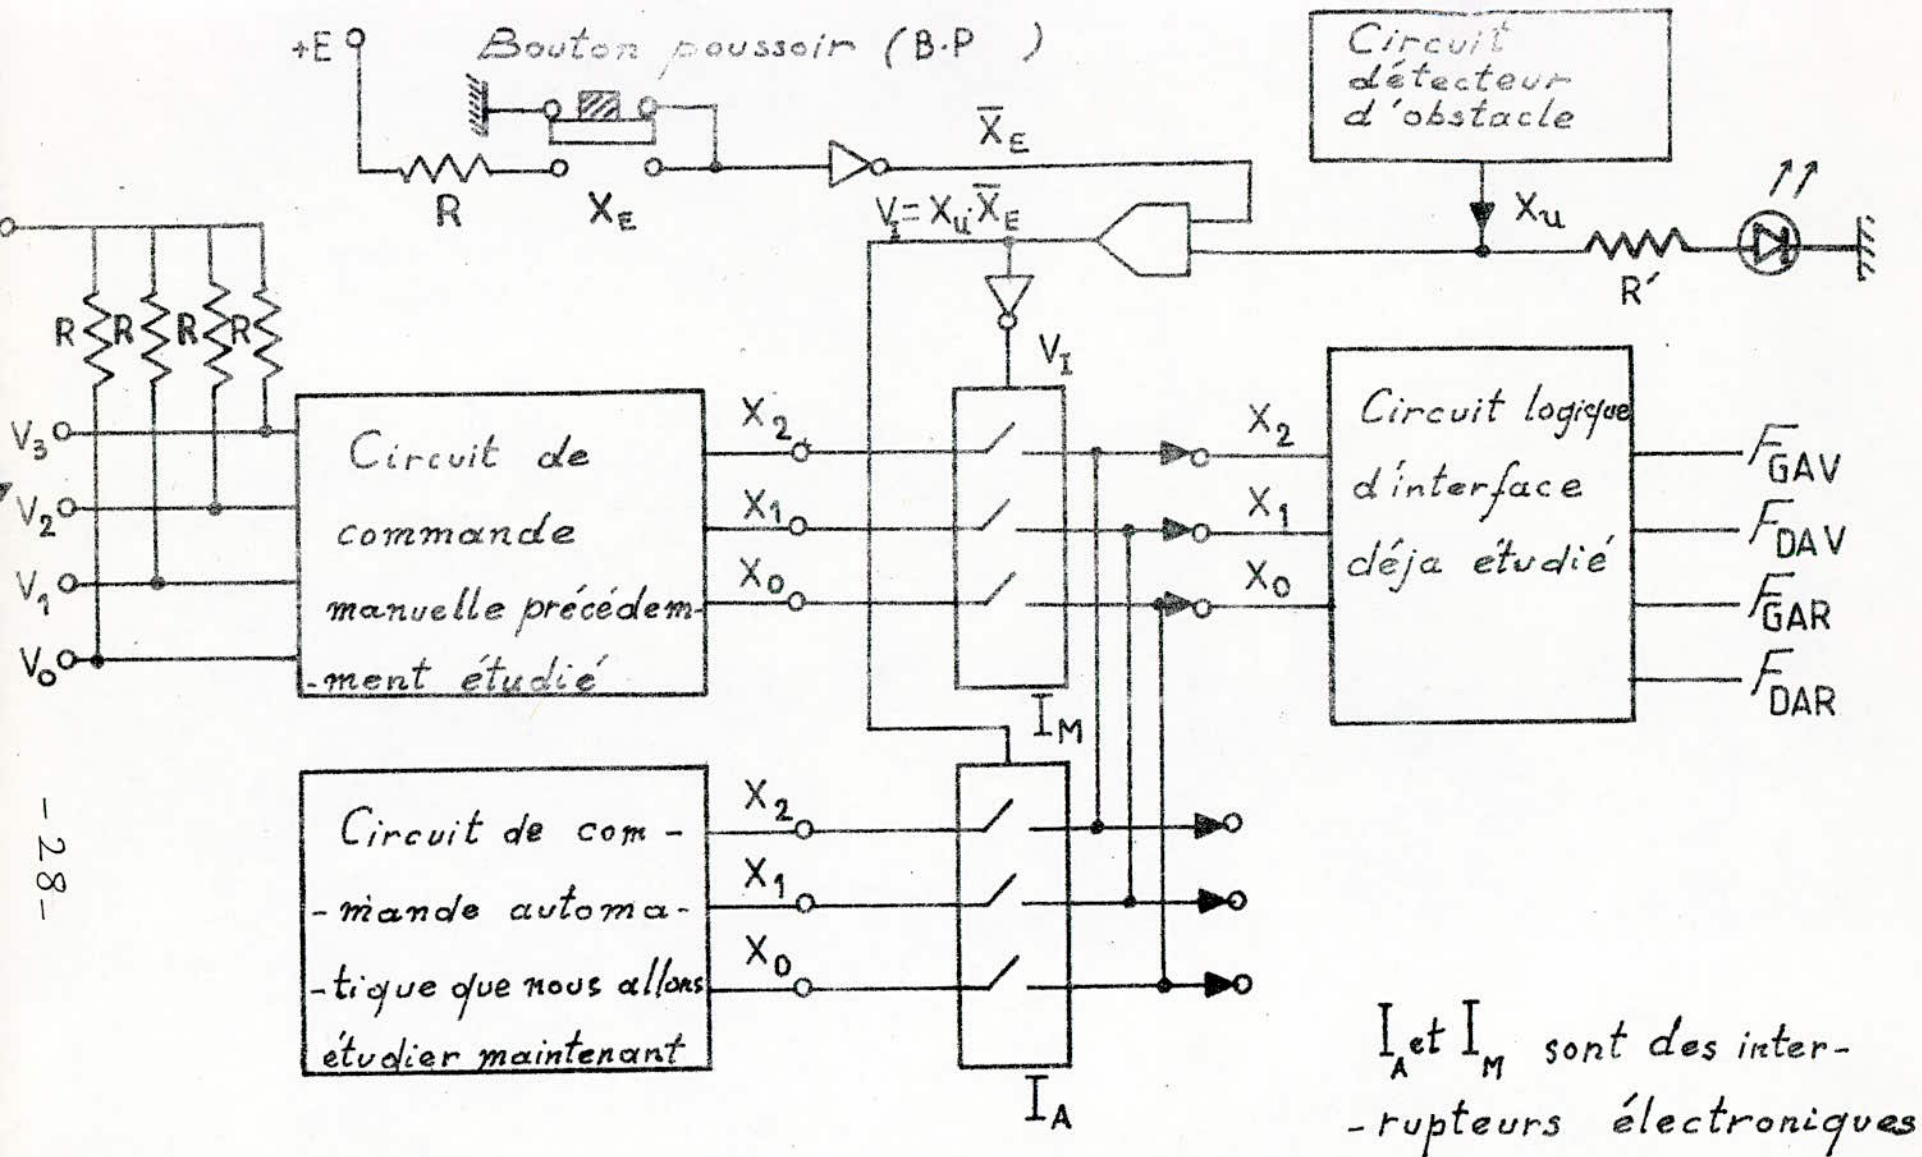 +E
Bouton poussoir (B.P )
Circuit
détecteur
d'obstacle
X̅E
R
XE
VI=Xu.X̅E
Xu
R'
R
R
R
R
VI
V3
V2
V1
V0
Circuit de
commande
manuelle précédem-
-ment étudié
X2
X1
X0
IM
X2
X1
X0
Circuit logique
d'interface
déja étudié
FGAV
FDAV
FGAR
FDAR
-28-
Circuit de com -
- mande automa -
-tique que nous allons
étudier maintenant
X2
X1
X0
IA
IA et IM sont des inter-
-rupteurs électroniques